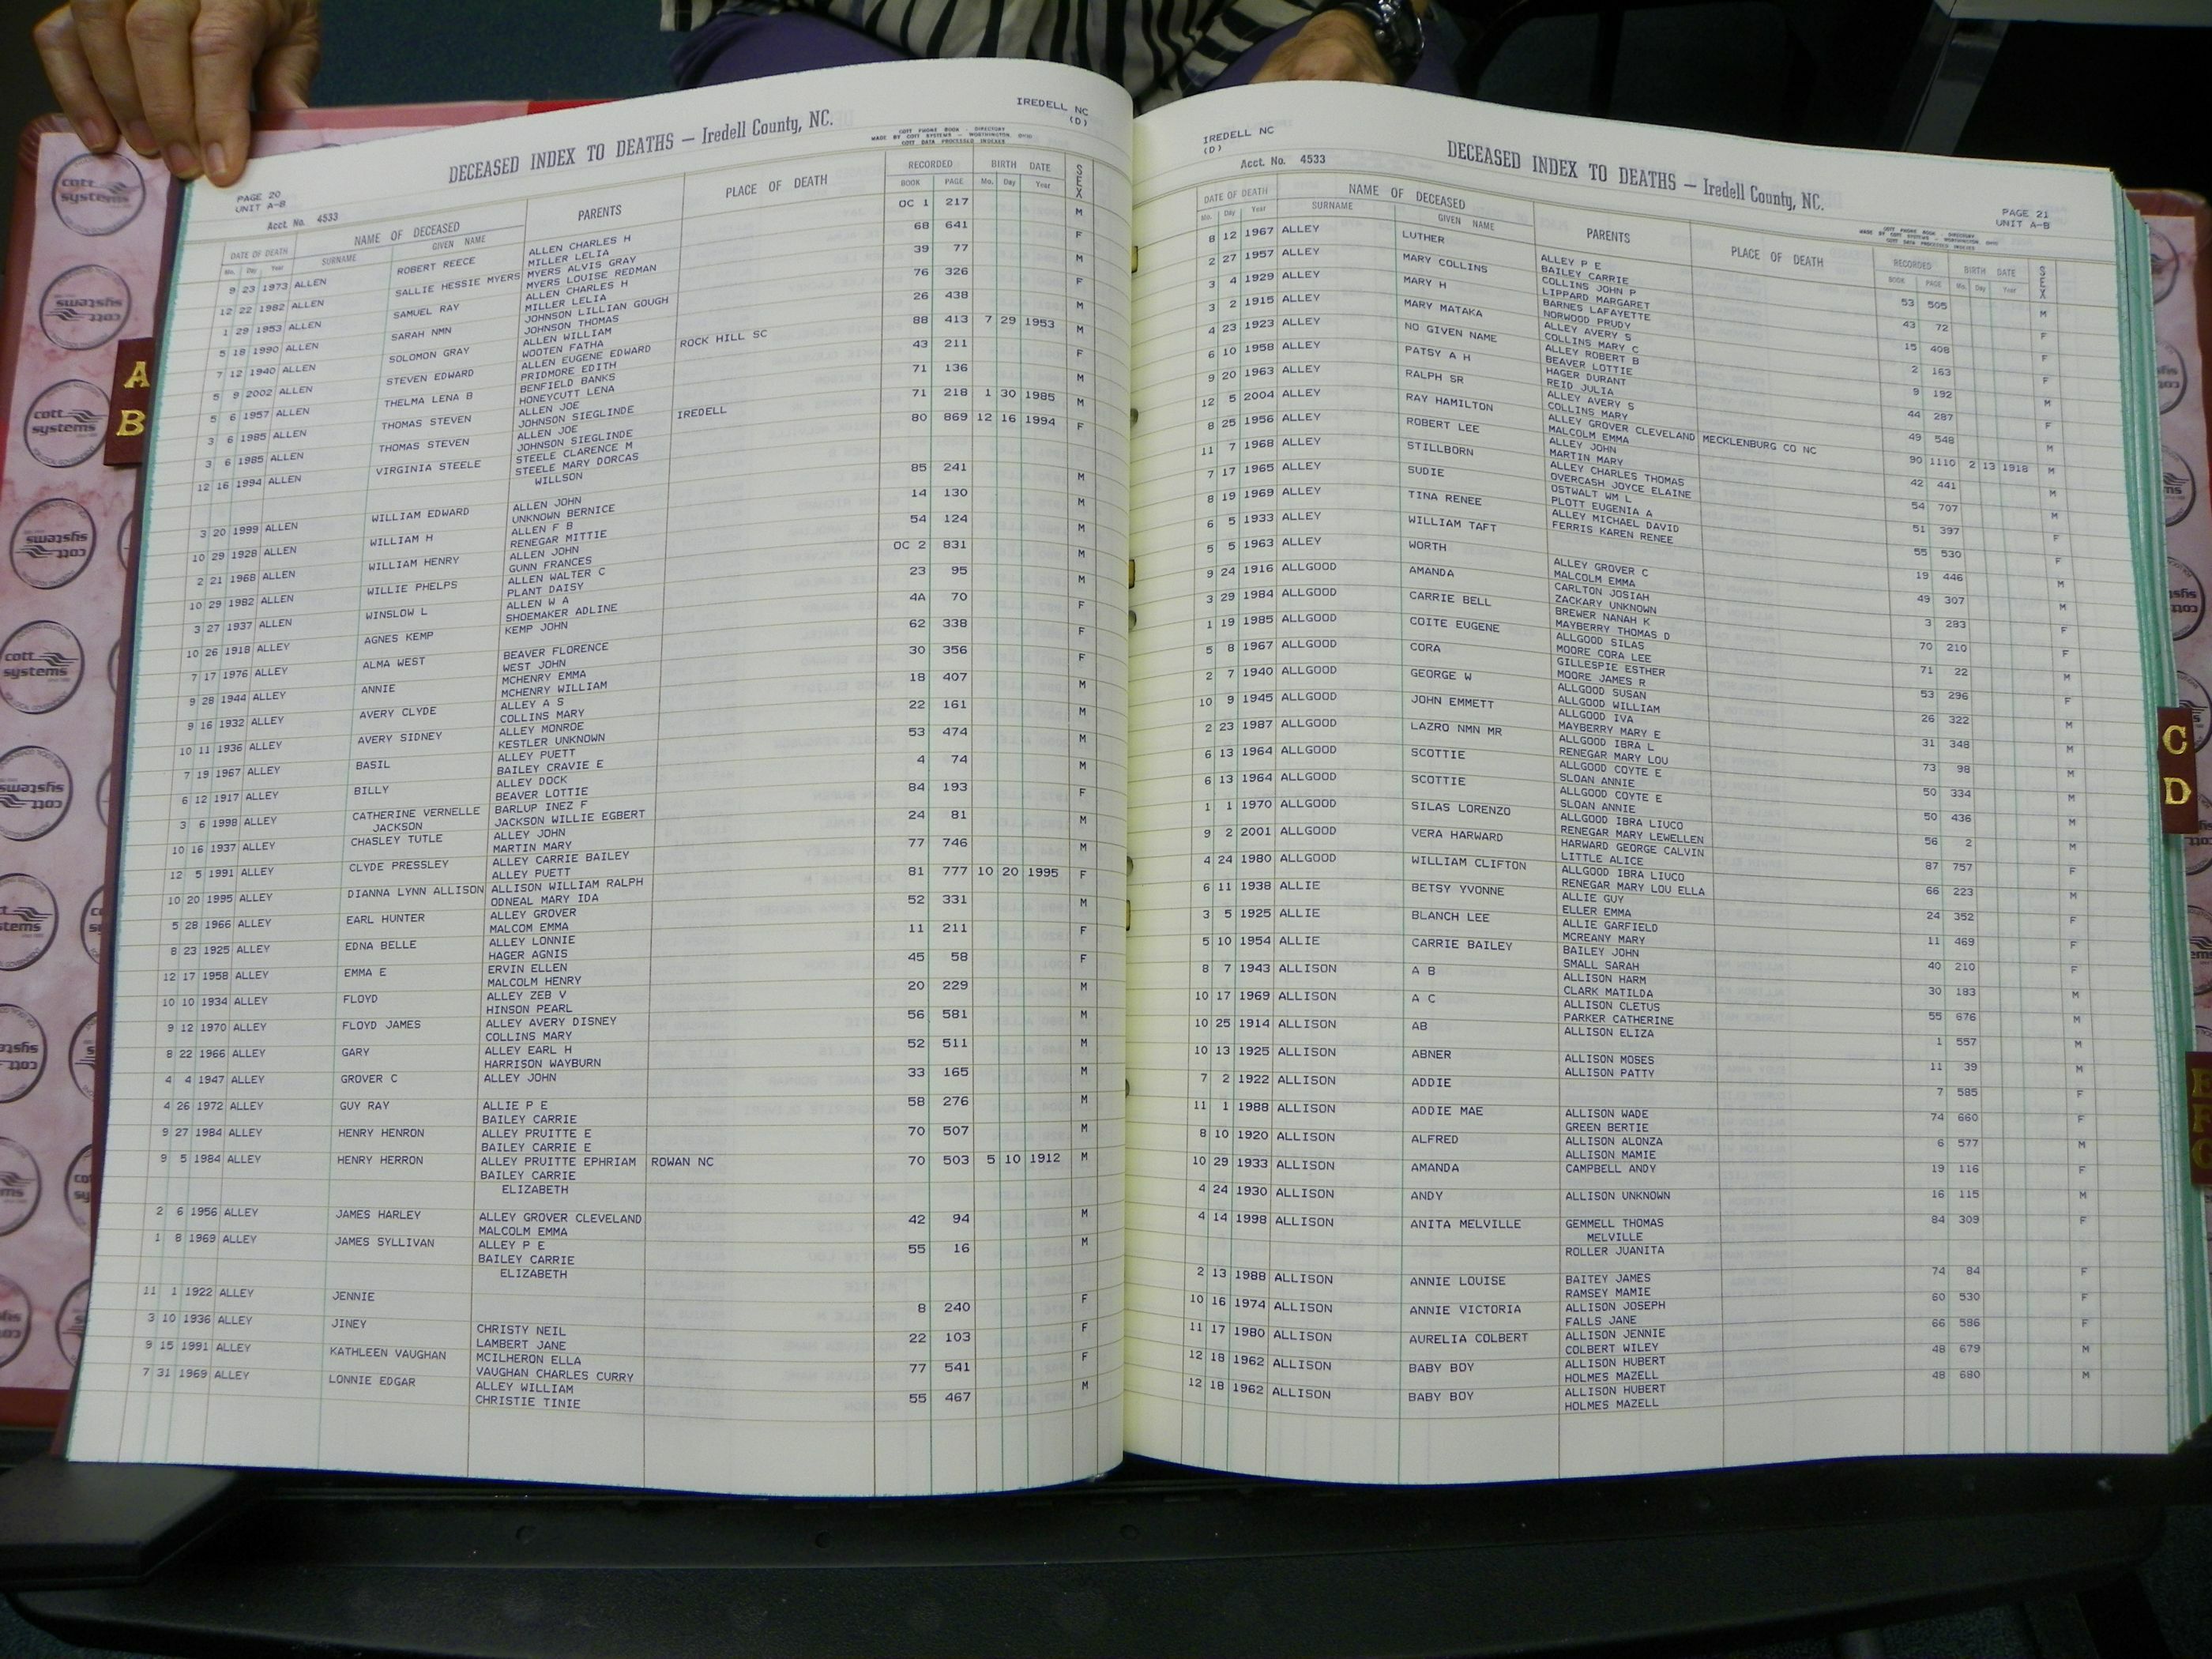 IREDELL NC
(D)
DECEASED INDEX TO DEATHS — Iredell County, NC.
COTT PHONE BOOK - DIRECTORY
MADE BY COTT SYSTEMS - WORTHINGTON, OHIO
COTT DATA PROCESSED INDEXES
PAGE 20
UNIT A-B
Acct. No. 4533
DATE OF DEATH NAME OF DECEASED PARENTS PLACE OF DEATH RECORDED BIRTH DATE SEX
Mo. Day Year SURNAME GIVEN NAME BOOK PAGE Mo. Day Year
9 23 1973 ALLEN ROBERT REECE ALLEN CHARLES H OC 1 217 M
MILLER LELIA
12 22 1982 ALLEN SALLIE HESSIE MYERS MYERS ALVIS GRAY 68 641 F
MYERS LOUISE REDMAN
1 29 1953 ALLEN SAMUEL RAY ALLEN CHARLES H 39 77 M
MILLER LELIA
5 18 1990 ALLEN SARAH NMN JOHNSON LILLIAN GOUGH 76 326 F
JOHNSON THOMAS
7 12 1940 ALLEN SOLOMON GRAY ALLEN WILLIAM 26 438 M
WOOTEN FATHA
5 9 2002 ALLEN STEVEN EDWARD ALLEN EUGENE EDWARD ROCK HILL SC 88 413 7 29 1953 M
PRIDMORE EDITH
5 6 1957 ALLEN THELMA LENA B BENFIELD BANKS 43 211 F
HONEYCUTT LENA
3 6 1985 ALLEN THOMAS STEVEN ALLEN JOE 71 136 M
JOHNSON SIEGLINDE
3 6 1985 ALLEN THOMAS STEVEN ALLEN JOE IREDELL 71 218 1 30 1985 M
JOHNSON SIEGLINDE
12 16 1994 ALLEN VIRGINIA STEELE STEELE CLARENCE M 80 869 12 16 1994 F
STEELE MARY DORCAS
WILLSON
3 20 1999 ALLEN WILLIAM EDWARD ALLEN JOHN 85 241 M
UNKNOWN BERNICE
10 29 1928 ALLEN WILLIAM H ALLEN F B 14 130 M
RENEGAR MITTIE
2 21 1968 ALLEN WILLIAM HENRY ALLEN JOHN 54 124 M
GUNN FRANCES
10 29 1982 ALLEN WILLIE PHELPS ALLEN WALTER C OC 2 831 M
PLANT DAISY
3 27 1937 ALLEN WINSLOW L ALLEN W A 23 95 M
SHOEMAKER ADLINE
10 26 1918 ALLEY AGNES KEMP KEMP JOHN 4A 70 F
7 17 1976 ALLEY ALMA WEST BEAVER FLORENCE 62 338 F
WEST JOHN
9 28 1944 ALLEY ANNIE MCHENRY EMMA 30 356 F
MCHENRY WILLIAM
9 16 1932 ALLEY AVERY CLYDE ALLEY A S 18 407 M
COLLINS MARY
10 11 1936 ALLEY AVERY SIDNEY ALLEY MONROE 22 161 M
KESTLER UNKNOWN
7 19 1967 ALLEY BASIL ALLEY PUETT 53 474 M
BAILEY CRAVIE E
6 12 1917 ALLEY BILLY ALLEY DOCK 4 74 M
BEAVER LOTTIE
3 6 1998 ALLEY CATHERINE VERNELLE BARLUP INEZ F 84 193 F
JACKSON JACKSON WILLIE EGBERT
10 16 1937 ALLEY CHASLEY TUTLE ALLEY JOHN 24 81 M
MARTIN MARY
12 5 1991 ALLEY CLYDE PRESSLEY ALLEY CARRIE BAILEY 77 746 M
ALLEY PUETT
10 20 1995 ALLEY DIANNA LYNN ALLISON ALLISON WILLIAM RALPH 81 777 10 20 1995 F
ODNEAL MARY IDA
5 28 1966 ALLEY EARL HUNTER ALLEY GROVER 52 331 M
MALCOM EMMA
8 23 1925 ALLEY EDNA BELLE ALLEY LONNIE 11 211 F
HAGER AGNIS
12 17 1958 ALLEY EMMA E ERVIN ELLEN 45 58 F
MALCOLM HENRY
10 10 1934 ALLEY FLOYD ALLEY ZEB V 20 229 M
HINSON PEARL
9 12 1970 ALLEY FLOYD JAMES ALLEY AVERY DISNEY 56 581 M
COLLINS MARY
8 22 1966 ALLEY GARY ALLEY EARL H 52 511 M
HARRISON WAYBURN
4 4 1947 ALLEY GROVER C ALLEY JOHN 33 165 M
4 26 1972 ALLEY GUY RAY ALLIE P E 58 276 M
BAILEY CARRIE
9 27 1984 ALLEY HENRY HENRON ALLEY PRUITTE E 70 507 M
BAILEY CARRIE E
9 5 1984 ALLEY HENRY HERRON ALLEY PRUITTE EPHRIAM ROWAN NC 70 503 5 10 1912 M
BAILEY CARRIE
ELIZABETH
2 6 1956 ALLEY JAMES HARLEY ALLEY GROVER CLEVELAND 42 94 M
MALCOLM EMMA
1 8 1969 ALLEY JAMES SYLLIVAN ALLEY P E 55 16 M
BAILEY CARRIE
ELIZABETH
11 1 1922 ALLEY JENNIE 8 240 F
3 10 1936 ALLEY JINEY CHRISTY NEIL 22 103 F
LAMBERT JANE
9 15 1991 ALLEY KATHLEEN VAUGHAN MCILHERON ELLA 77 541 F
VAUGHAN CHARLES CURRY
7 31 1969 ALLEY LONNIE EDGAR ALLEY WILLIAM 55 467 M
CHRISTIE TINIE
IREDELL NC
(D)
Acct. No. 4533
DECEASED INDEX TO DEATHS — Iredell County, NC.
PAGE 21
UNIT A-B
COTT PHONE BOOK - DIRECTORY
MADE BY COTT SYSTEMS - WORTHINGTON, OHIO
COTT DATA PROCESSED INDEXES
DATE OF DEATH NAME OF DECEASED PARENTS PLACE OF DEATH RECORDED BIRTH DATE SEX
Mo. Day Year SURNAME GIVEN NAME BOOK PAGE Mo. Day Year
8 12 1967 ALLEY LUTHER ALLEY P E 53 505 M
BAILEY CARRIE
2 27 1957 ALLEY MARY COLLINS COLLINS JOHN P 43 72 F
LIPPARD MARGARET
3 4 1929 ALLEY MARY H BARNES LAFAYETTE 15 408 F
NORWOOD PRUDY
3 2 1915 ALLEY MARY MATAKA ALLEY AVERY S 2 163 F
COLLINS MARY C
4 23 1923 ALLEY NO GIVEN NAME ALLEY ROBERT B 9 192 M
BEAVER LOTTIE
6 10 1958 ALLEY PATSY A H HAGER DURANT 44 287 F
REID JULIA
9 20 1963 ALLEY RALPH SR ALLEY AVERY S 49 548 M
COLLINS MARY
12 5 2004 ALLEY RAY HAMILTON ALLEY GROVER CLEVELAND MECKLENBURG CO NC 90 1110 2 13 1918 M
MALCOLM EMMA
8 25 1956 ALLEY ROBERT LEE ALLEY JOHN 42 441 M
MARTIN MARY
11 7 1968 ALLEY STILLBORN ALLEY CHARLES THOMAS 54 707 M
OVERCASH JOYCE ELAINE
7 17 1965 ALLEY SUDIE OSTWALT WM L 51 397 F
PLOTT EUGENIA A
8 19 1969 ALLEY TINA RENEE ALLEY MICHAEL DAVID 55 530 F
FERRIS KAREN RENEE
6 5 1933 ALLEY WILLIAM TAFT 19 446 M
5 5 1963 ALLEY WORTH ALLEY GROVER C 49 307 M
MALCOLM EMMA
9 24 1916 ALLGOOD AMANDA CARLTON JOSIAH 3 283 F
ZACKARY UNKNOWN
3 29 1984 ALLGOOD CARRIE BELL BREWER NANAH K 70 210 F
MAYBERRY THOMAS D
1 19 1985 ALLGOOD COITE EUGENE ALLGOOD SILAS 71 22 M
MOORE CORA LEE
5 8 1967 ALLGOOD CORA GILLESPIE ESTHER 53 296 F
MOORE JAMES R
2 7 1940 ALLGOOD GEORGE W ALLGOOD SUSAN 26 322 M
ALLGOOD WILLIAM
10 9 1945 ALLGOOD JOHN EMMETT ALLGOOD IVA 31 348 M
MAYBERRY MARY E
2 23 1987 ALLGOOD LAZRO NMN MR ALLGOOD IBRA L 73 98 M
RENEGAR MARY LOU
6 13 1964 ALLGOOD SCOTTIE ALLGOOD COYTE E 50 334 M
SLOAN ANNIE
6 13 1964 ALLGOOD SCOTTIE ALLGOOD COYTE E 50 436 M
SLOAN ANNIE
1 1 1970 ALLGOOD SILAS LORENZO ALLGOOD IBRA LIUCO 56 2 M
RENEGAR MARY LEWELLEN
9 2 2001 ALLGOOD VERA HARWARD HARWARD GEORGE CALVIN 87 757 F
LITTLE ALICE
4 24 1980 ALLGOOD WILLIAM CLIFTON ALLGOOD IBRA LIUCO 66 223 M
RENEGAR MARY LOU ELLA
6 11 1938 ALLIE BETSY YVONNE ALLIE GUY 24 352 F
ELLER EMMA
3 5 1925 ALLIE BLANCH LEE ALLIE GARFIELD 11 469 F
MCREANY MARY
5 10 1954 ALLIE CARRIE BAILEY BAILEY JOHN 40 210 F
SMALL SARAH
8 7 1943 ALLISON A B ALLISON HARM 30 183 M
CLARK MATILDA
10 17 1969 ALLISON A C ALLISON CLETUS 55 676 M
PARKER CATHERINE
10 25 1914 ALLISON AB ALLISON ELIZA 1 557 M
10 13 1925 ALLISON ABNER ALLISON MOSES 11 39 M
ALLISON PATTY
7 2 1922 ALLISON ADDIE 7 585 F
11 1 1988 ALLISON ADDIE MAE ALLISON WADE 74 660 F
GREEN BERTIE
8 10 1920 ALLISON ALFRED ALLISON ALONZA 6 577 M
ALLISON MAMIE
10 29 1933 ALLISON AMANDA CAMPBELL ANDY 19 116 F
4 24 1930 ALLISON ANDY ALLISON UNKNOWN 16 115 M
4 14 1998 ALLISON ANITA MELVILLE GEMMELL THOMAS 84 309 F
MELVILLE
ROLLER JUANITA
2 13 1988 ALLISON ANNIE LOUISE BAITEY JAMES 74 84 F
RAMSEY MAMIE
10 16 1974 ALLISON ANNIE VICTORIA ALLISON JOSEPH 60 530 F
FALLS JANE
11 17 1980 ALLISON AURELIA COLBERT ALLISON JENNIE 66 586 F
COLBERT WILEY
12 18 1962 ALLISON BABY BOY ALLISON HUBERT 48 679 M
HOLMES MAZELL
12 18 1962 ALLISON BABY BOY ALLISON HUBERT 48 680 M
HOLMES MAZELL
A
B
C
D
cott
systems